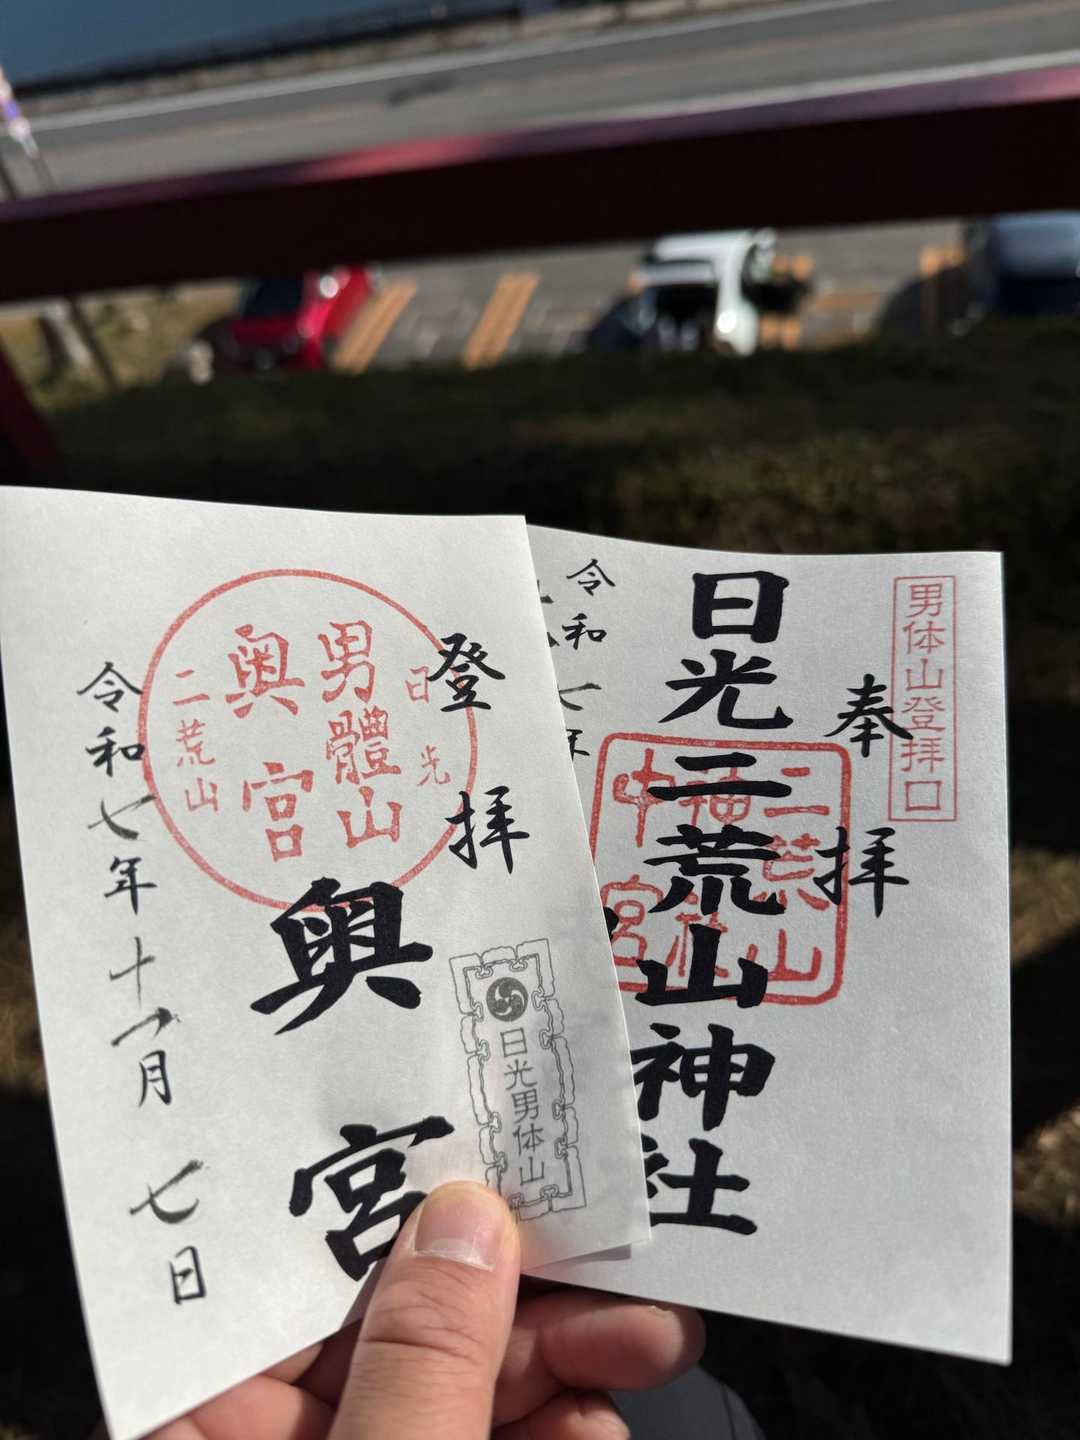 男体山登拝口
奉拝
日光二荒山神社
二荒山
神社
中宮
令和七年
登拝
奥宮
日光
男體山
奥宮
二荒山
日光男体山
令和七年十一月七日